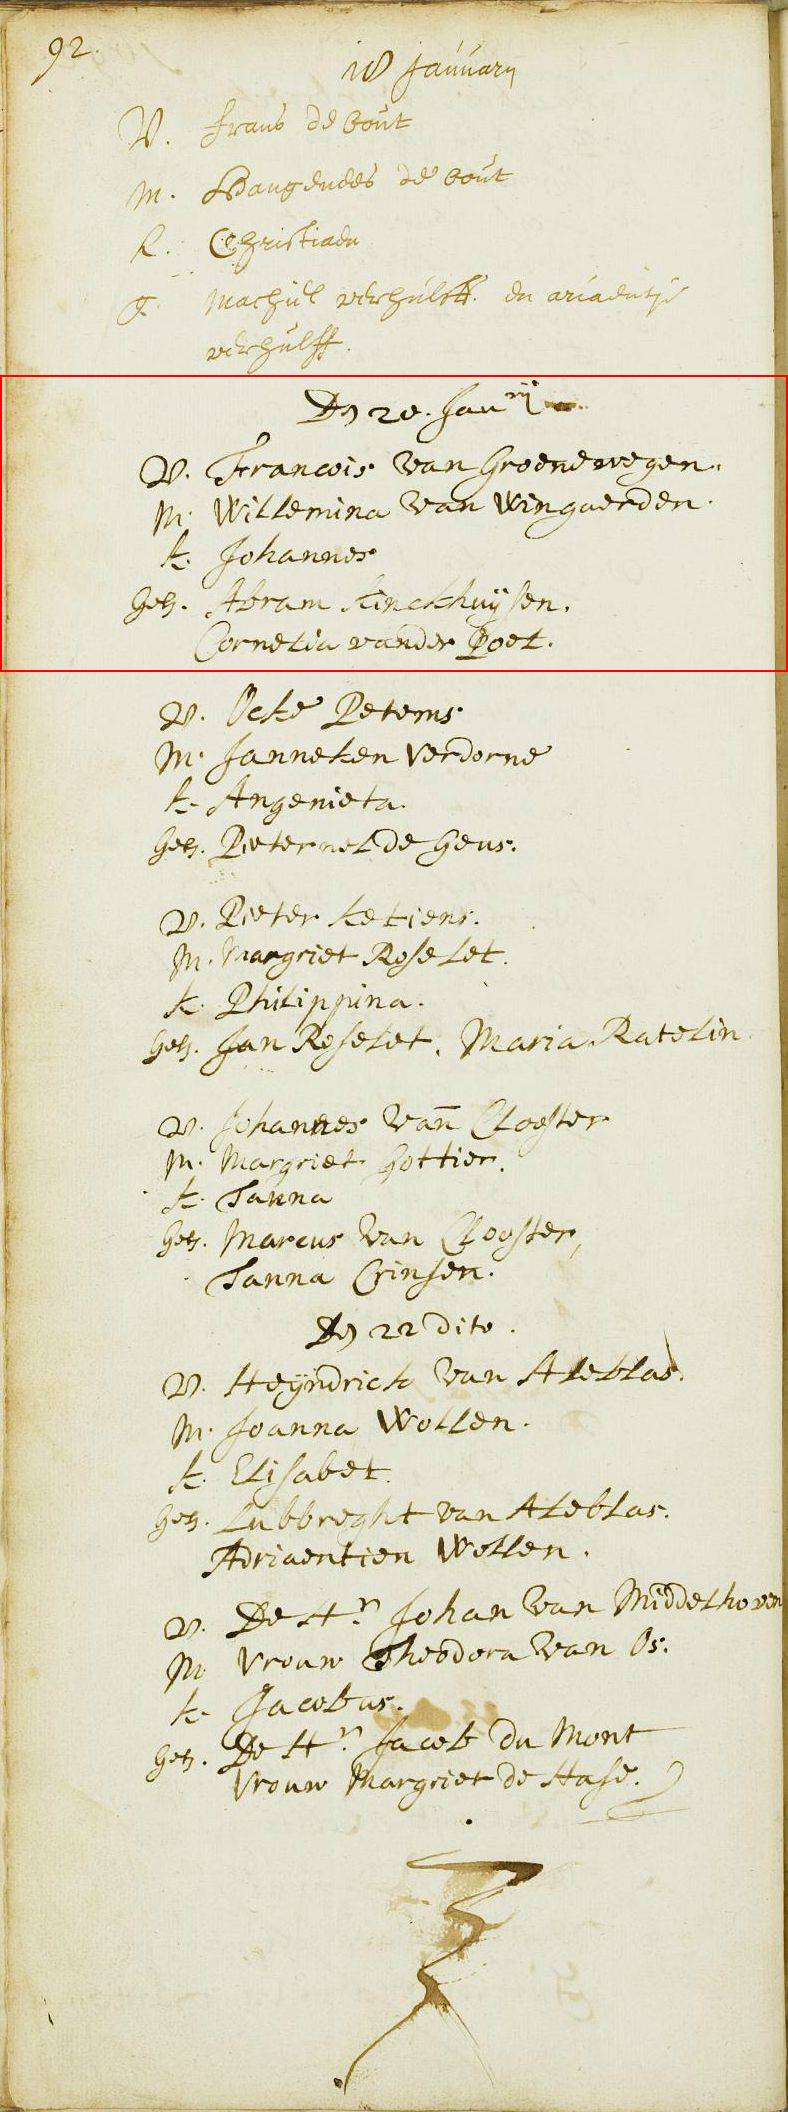 92.
18 January
V. frans de bout
M. Hangenees de bout
k. Christiaen
g. Machiel verhulst. en ariaentje
verhulst.
Den 20. Janrij
V. Francois van Groenewegen.
M. Willemina van Wingaerden.
k. Johannes
Get. Abram kinckhuijsen.
Cornelia vander Poel.
V. Ocke Petems
M. Janneken Verdorne
k. Angenieta.
Get. Pieternel de Geus.
V. Pieter ketiens.
M. Margriet Roselet.
k. Philippina.
Get. Jan Roselet. Maria Ratelin
V. Johannes van Clooster
M. Margriet Gottier.
k. Tanna
Get. Marcus van Clooster,
Tanna Crinsen.
Den 22 dito.
V. Heyndrick van Aleblas.
M. Joanna Wollen.
k. Elisabet.
Get. Lubbreght van Aleblas.
Adriaentien Wollen.
V. De Hr. Johan van Middelhoven
M Vrouw Theodora van Os.
k. Jacobus.
Get. De Hr. Jacob du Mont
Vrouw Margriet de Hase.